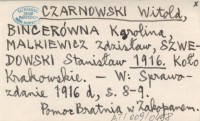 CZARNOWSKI Witold,
BINCERÓWNA Karolina,
MALKIEWICZ Zdzisław, SZWE-
DOWSKI Stanisław 1916. Koło
Krakowskie. - W: Sprawo-
zdanie 1916 d, s. 8-9.
Pomoc Bratnia w Zakopanem.